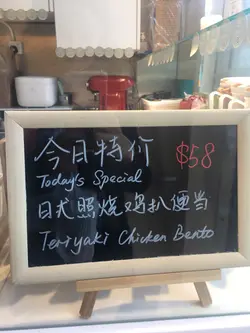 今日特价 $58
Today's Special
日式照烧鸡扒便当
Teriyaki Chicken Bento